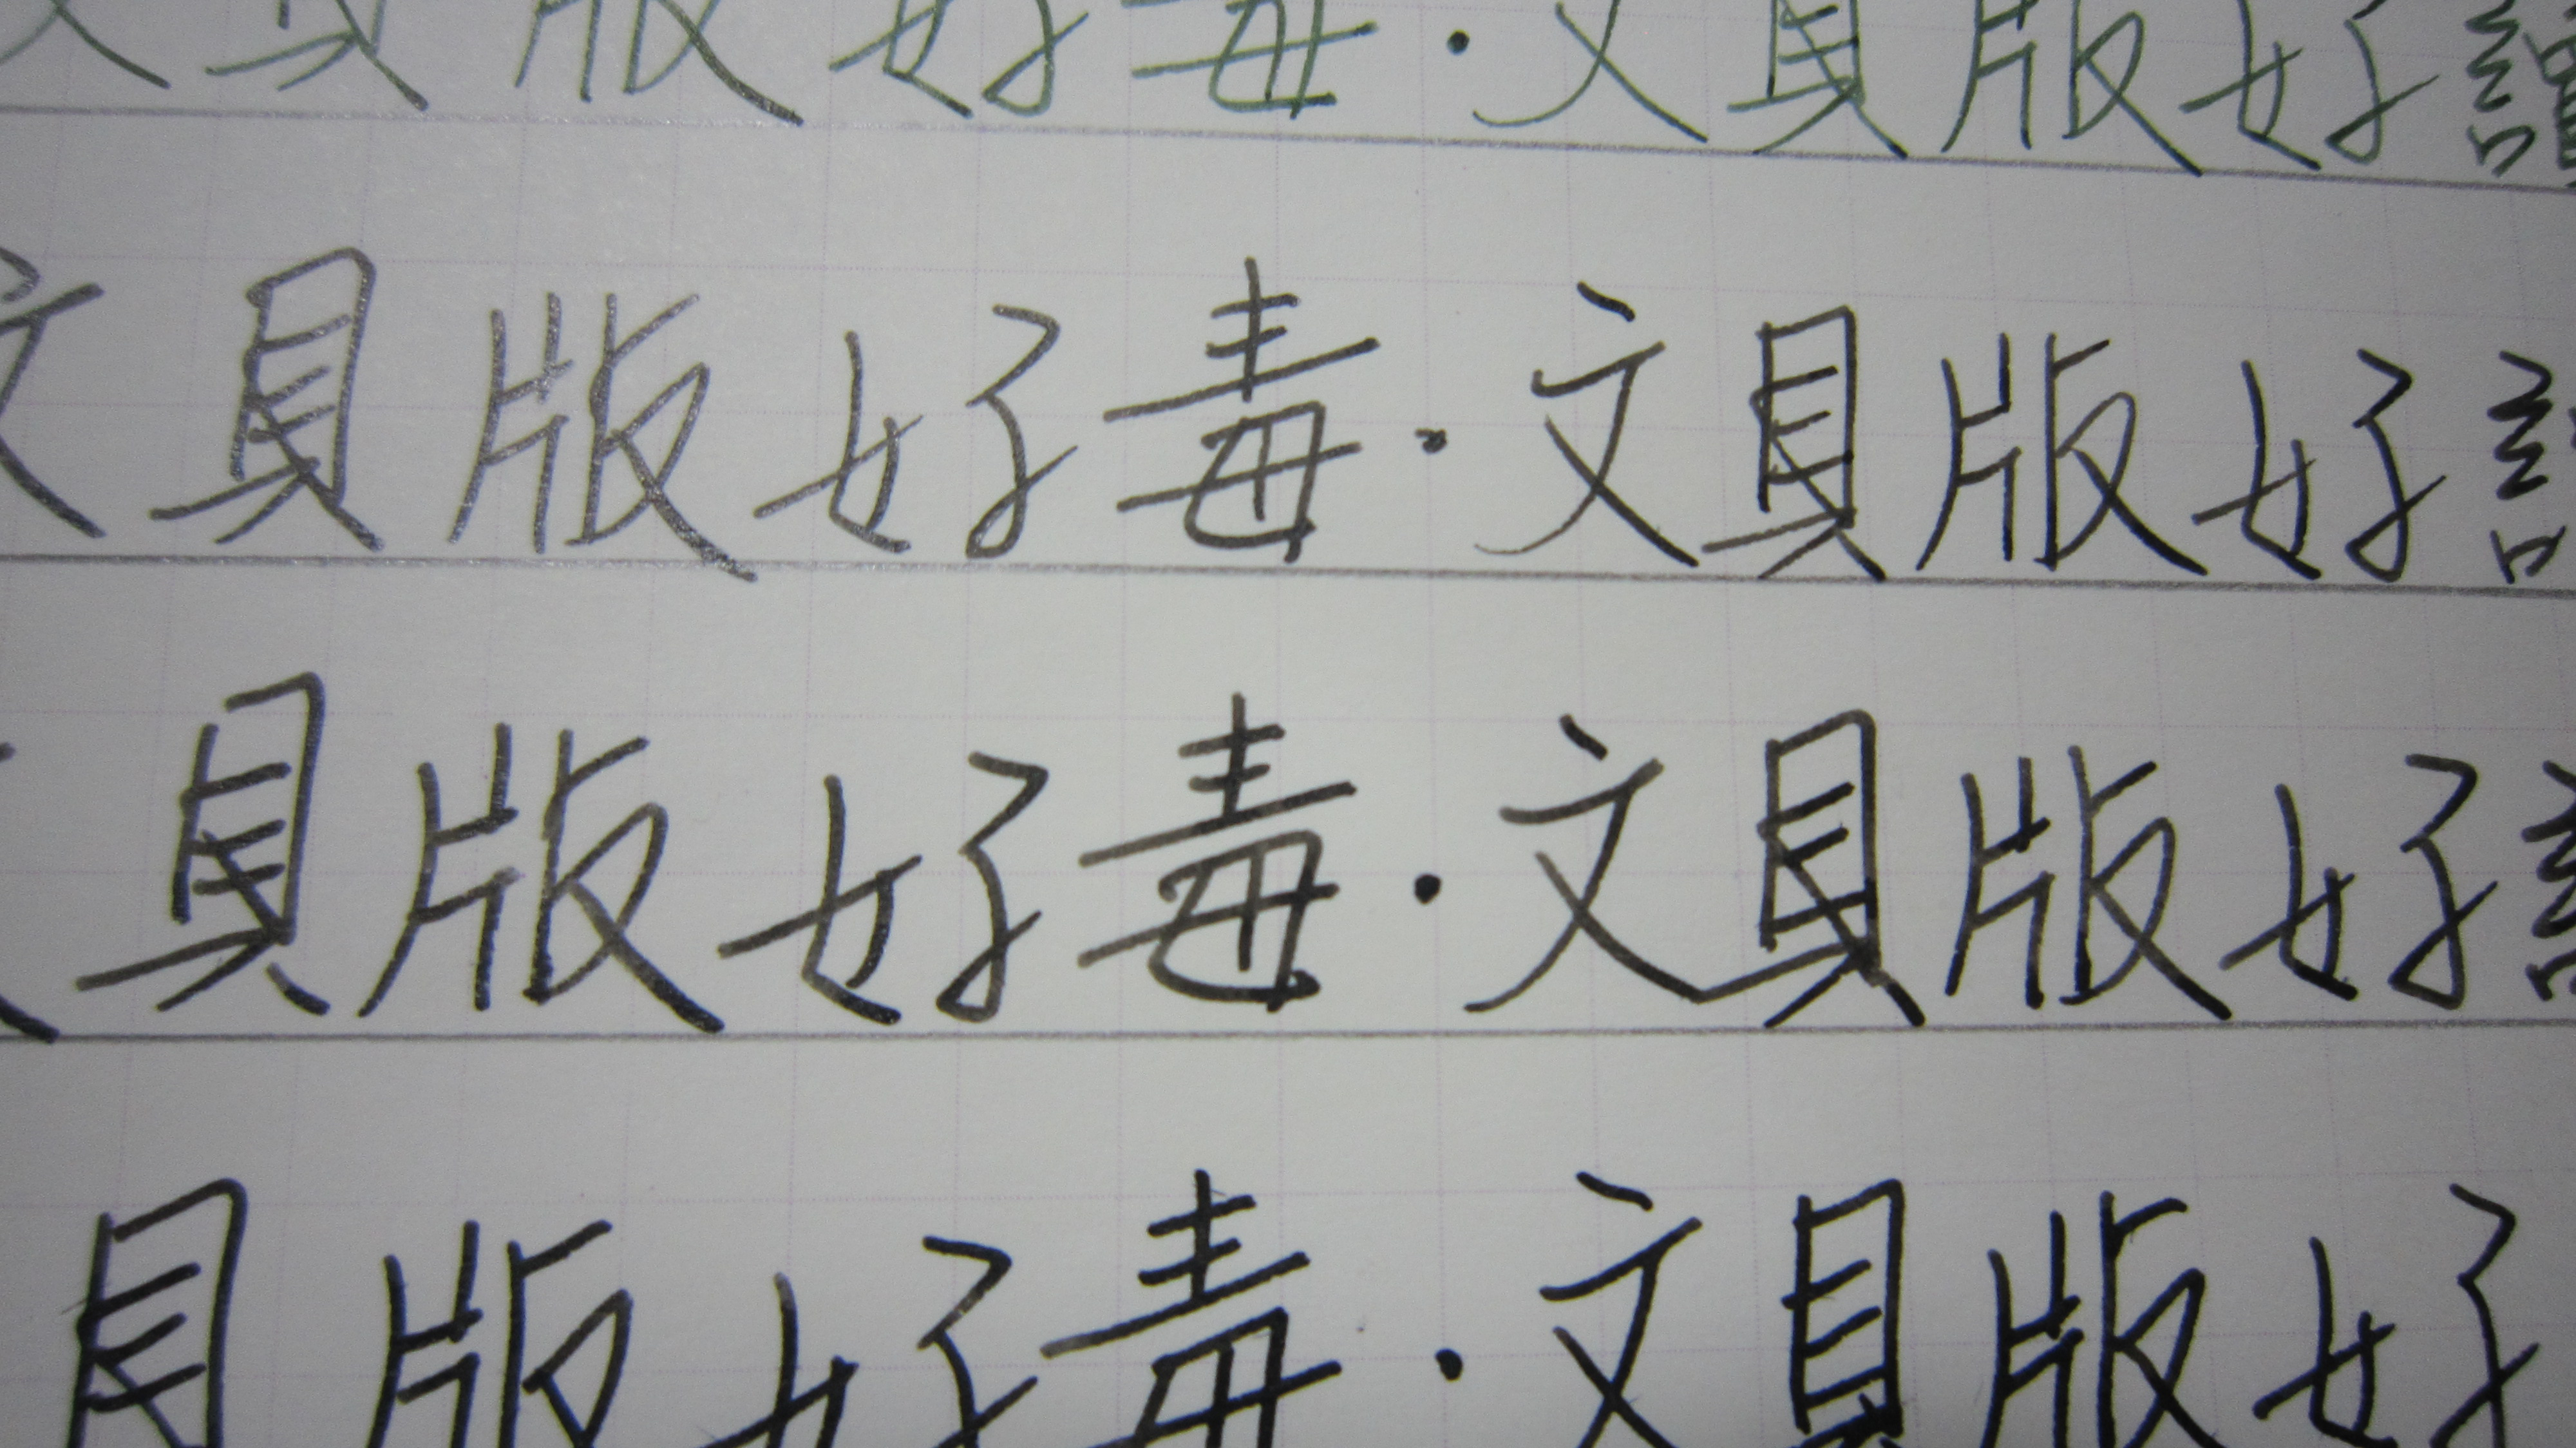 文具版好毒．文具版好讚
文具版好毒．文具版好
文具版好毒．文具版好
具版好毒．文具版好